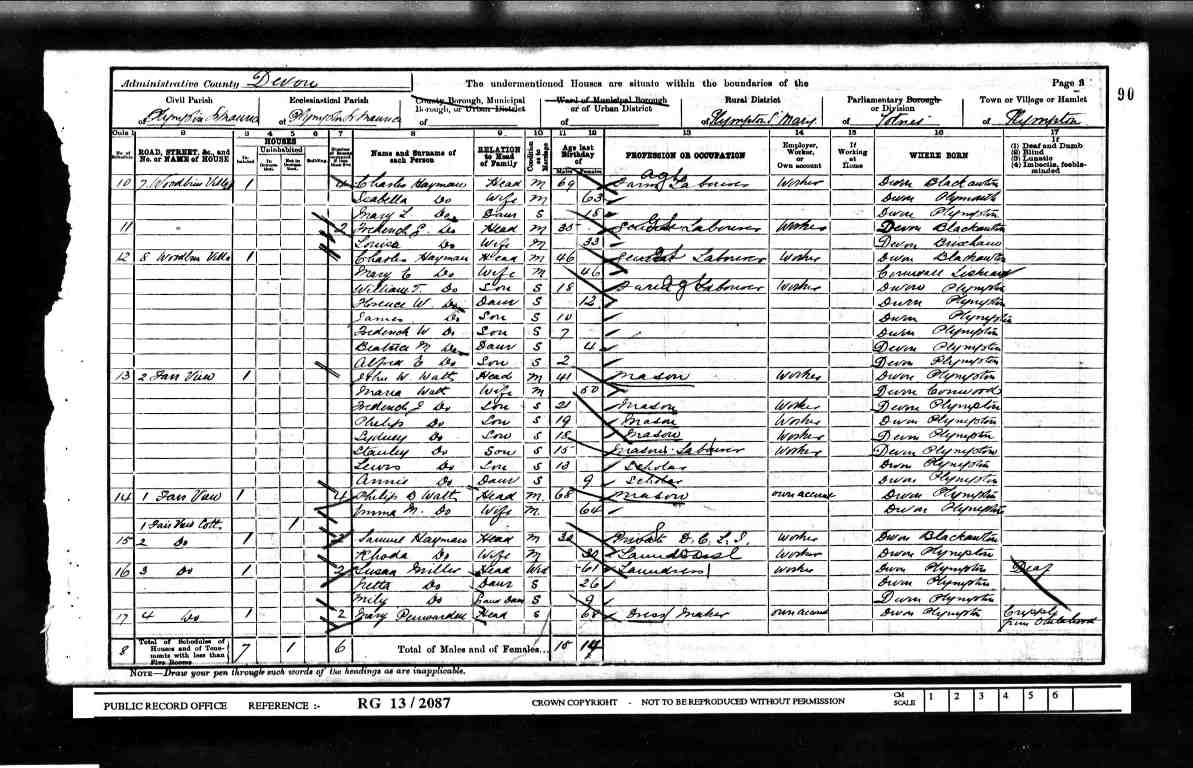 Administrative County Devon
The undermentioned Houses are situate within the boundaries of the
Page
90
Civil Parish
Ecclesiastical Parish
County Borough, Municipal Borough, or Urban District
Ward of Municipal Borough or of Urban District
Rural District
Parliamentary Borough or Division
Town or Village or Hamlet
of Plympton S Maurice
of Plympton S. Maurice
of
of
of Plympton S Mary
of Totnes
of Plympton
Cols. 1 2 3 4 5 6 7 8 9 10 11 12 13 14 15 16 17
No. of Schedule
ROAD, STREET, &c., and No. or NAME of HOUSE
HOUSES
Inhabited
Uninhabited
In Occupation
Not in Occupation
Building
Name and Surname of each Person
RELATION to Head of Family
Condition as to Marriage
Age last Birthday of
Males Females
PROFESSION OR OCCUPATION
Employer, Worker, or Own account
If Working at Home
WHERE BORN
If
(1) Deaf and Dumb
(2) Blind
(3) Lunatic
(4) Imbecile, feeble-minded
10 7 Woodbine Villa 1 4 Charles Hayman Head M 69 Farm Labourer Worker Devon Blackawton
agl
Isabella Do Wife M 63 Devon Plymouth
Mary L Do Daur S 18 Devon Plympton
11 1 2 Frederick E. Do Head M 35 Labourer Worker Devon Blackawton
Louisa Do Wife M 33 Devon Brixham
12 8 Woodbine Villa 1 Charles Hayman Head M 46 General Labourer Worker Devon Blackawton
Mary E Do Wife M 46 Cornwall Liskeard
William T. Do Son S 18 Labourer Worker Devon Plympton
Florence W. Do Daur S 12 Devon Plympton
James Do Son S 10 Devon Plympton
Frederick W Do Son S 7 Devon Plympton
Beatrice M Do Daur S 4 Devon Plympton
Alfred E Do Son S 2 Devon Plympton
13 2 Fair View 1 John W. Watt Head M 41 Mason Worker Devon Plympton
Maria Watt Wife M 50 Devon Cornwood
Frederick J Do Son S 21 Mason Worker Devon Plympton
Philip Do Son S 19 Mason Worker Devon Plympton
Sydney Do Son S 18 Mason Worker Devon Plympton
Stanley Do Son S 15 Masons Labourer Worker Devon Plympton
Lewis Do Son S 13 Scholar Devon Plympton
Annie Do Daur S 9 Scholar Devon Plympton
14 1 Fair View 1 4 Philip D Watt Head M 68 Mason own account Devon Plympton
Emma M. Do Wife M 64 Devon Plympton
1 Fair View Cott. 1
15 2 Do 1 Samuel Hayman Head M 32 Worker Devon Blackawton
Rhoda Do Wife M 30 Worker Devon Plympton
16 3 Do 1 2 Susan Miller Head Wid 61 Laundress Worker Devon Plympton Deaf
Netta Do Daur S 26 Devon Plympton
Do S 9 Devon Plympton
17 4 Do 1 2 Mary Penwarden Head S 60 Dress Maker own account Devon Plympton Cripple from Childhood
8 Total of Schedules of Houses and of Tenements with less than Five Rooms 7 1 6 Total of Males and of Females... 15
NOTE—Draw your pen through such words of the headings as are inapplicable.
PUBLIC RECORD OFFICE REFERENCE :- RG 13 / 2087 CROWN COPYRIGHT - NOT TO BE REPRODUCED WITHOUT PERMISSION CM SCALE 1 2 3 4 5 6